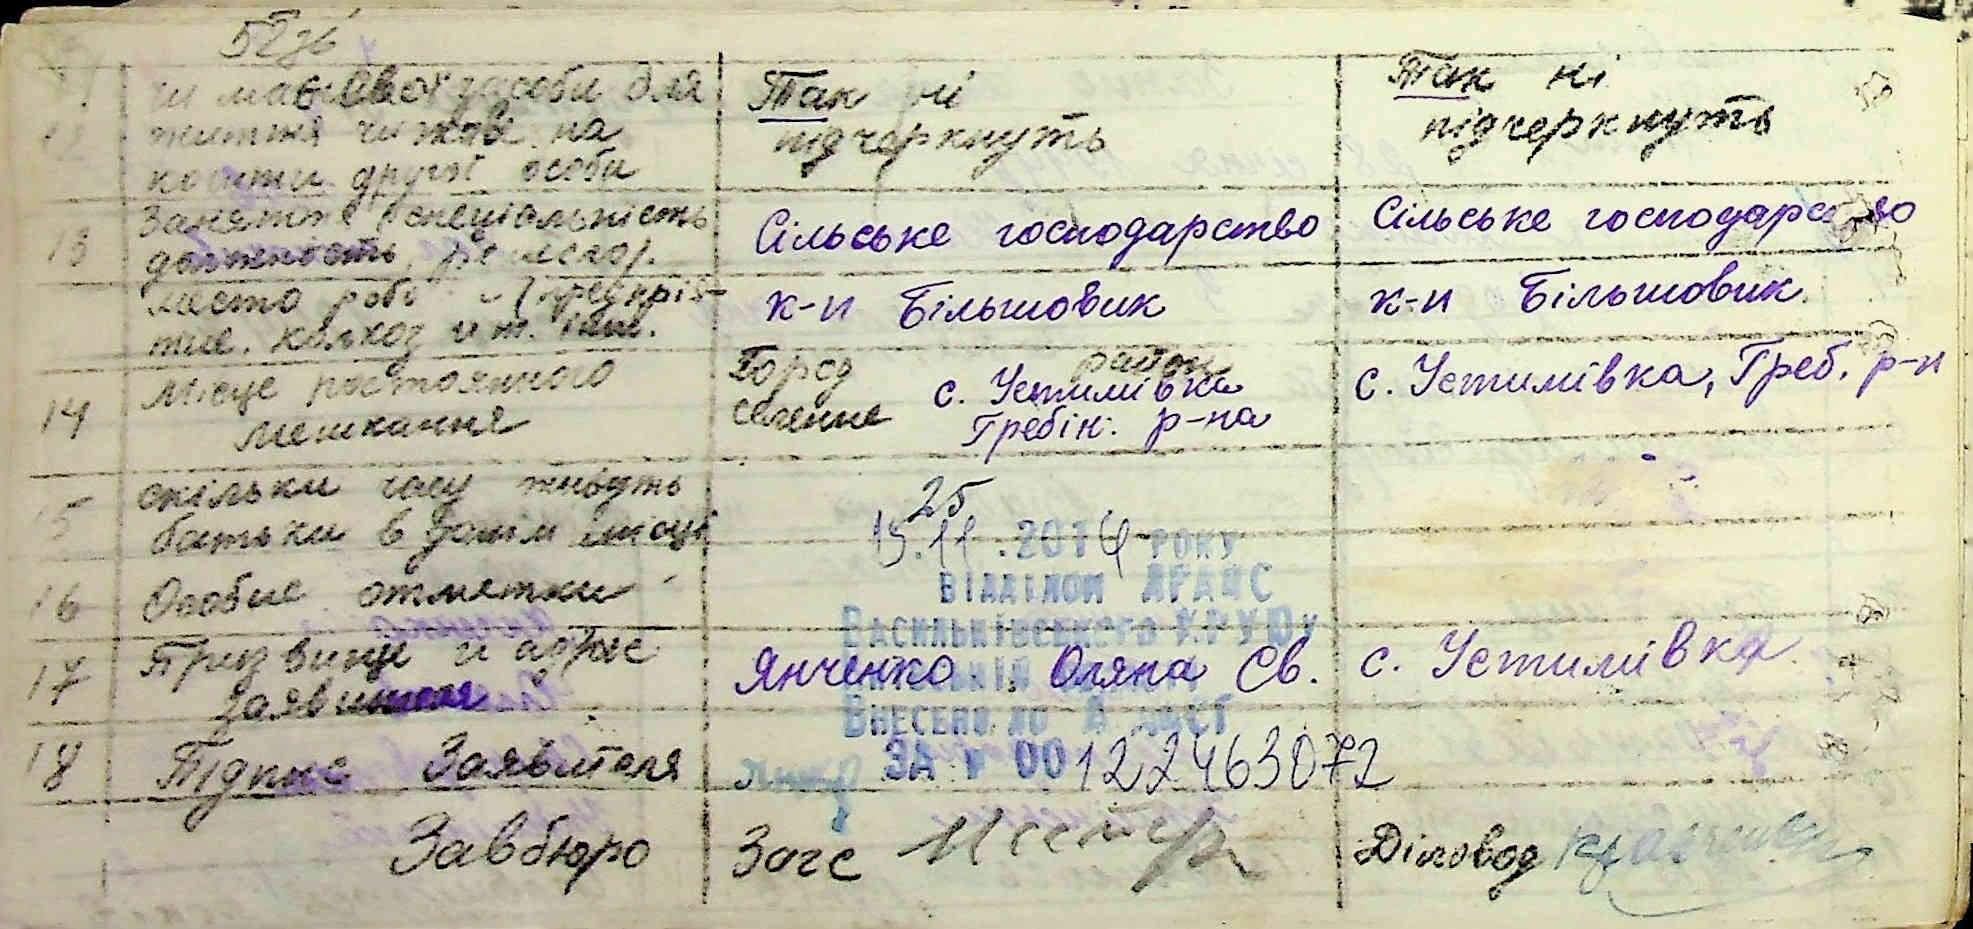 52зв
11 чи має свої засоби для
12 життя чи жив. на
кошти другої особи
Так ні
підчеркнуть
Так ні
підчеркнуть
13 Заняття спеціальність
должность,
Сільське господарство
Сільське господарство
место робо
тие. колхоз и т.
к-п Більшовик
к-п Більшовик
14 Місце постоянного
мешкання
Город район
селение с. Устимівка
Гребін. р-на
с. Устимівка, Греб. р-н
15 скільки часу живуть
батьки в даним місці
25
15.11.2014 року
16 Особые отметки
відділом ДРАЦС
Васильківського
17 Призвище и адрес
заявителя
Янченко Оляна Єв.
с. Устимівка
Внесено до
18 Підпис Заявителя
за № 00122463072
Завбюро Загс
Діловод